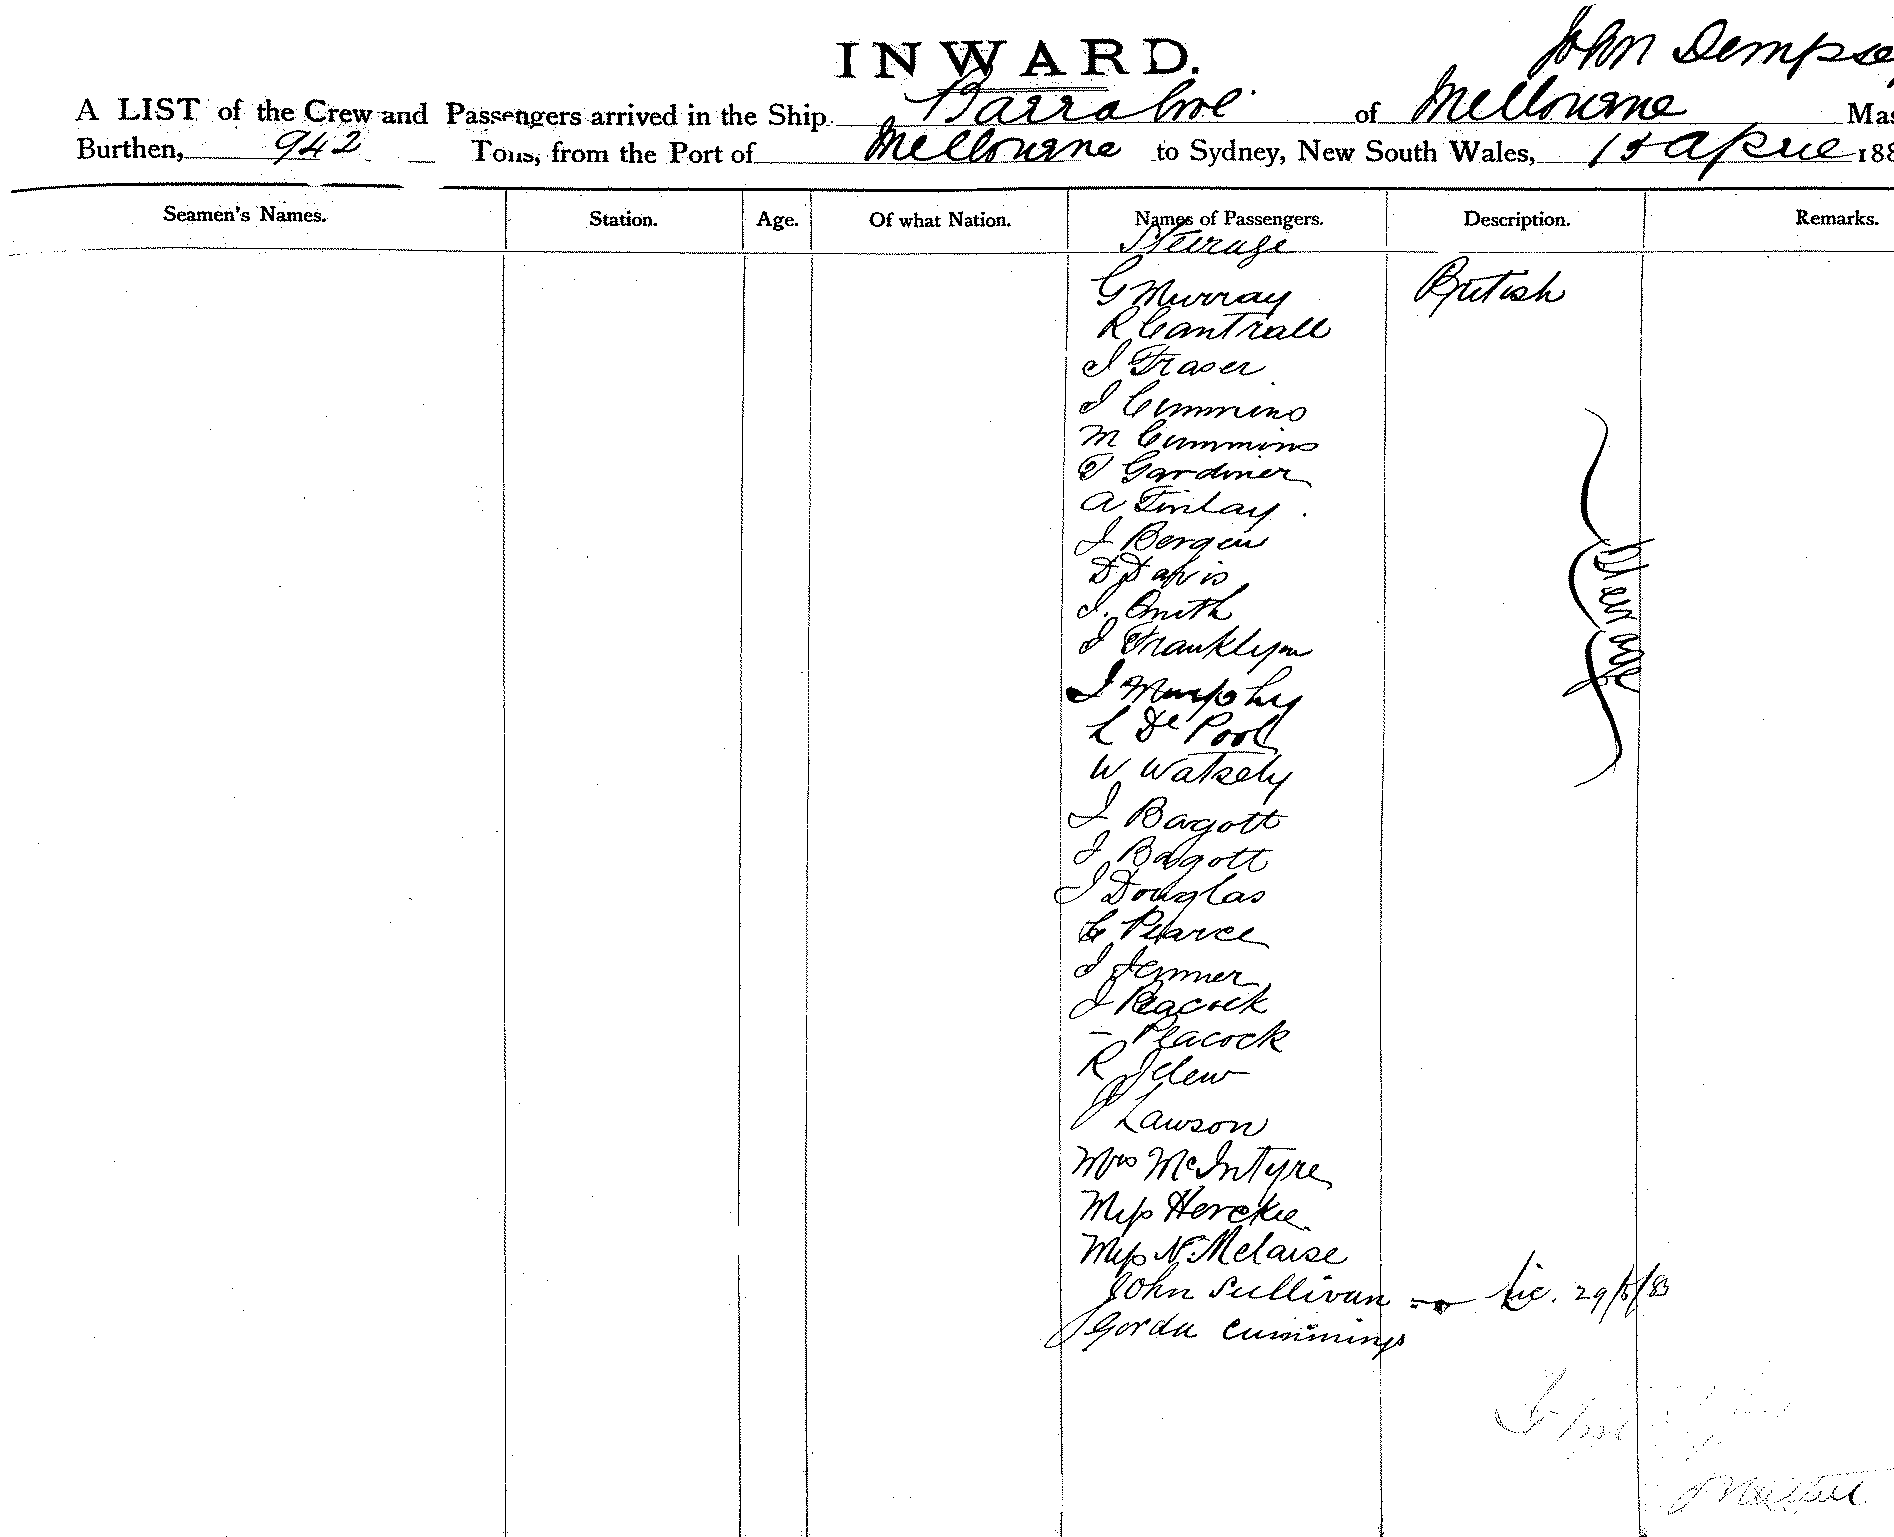 INWARD.
John Dempse
A LIST of the Crew and Passengers arrived in the Ship Barrabool of Melbourne Mas
Burthen, 942 Tons, from the Port of Melbourne to Sydney, New South Wales, 15 April 188
Seamen's Names. Station. Age. Of what Nation. Names of Passengers. Description. Remarks.
Steerage
G Murray British
R Cantrall
J Fraser
J Cummins
M Cummins
T Gardiner
A Finlay
J Bergin
D Davis
J. Smith
J Franklyn
Steerage
J Murphy
L De Pool
W Watsely
J Bagott
J Bagott
J Douglas
C Pearce
J Jenner
J Peacock
- Peacock
R Jclew
J Lawson
Mrs McIntyre
Miss Herckie
Miss N. Melaise
John Sullivan Lic. 29/5/83
Gorda Cummings